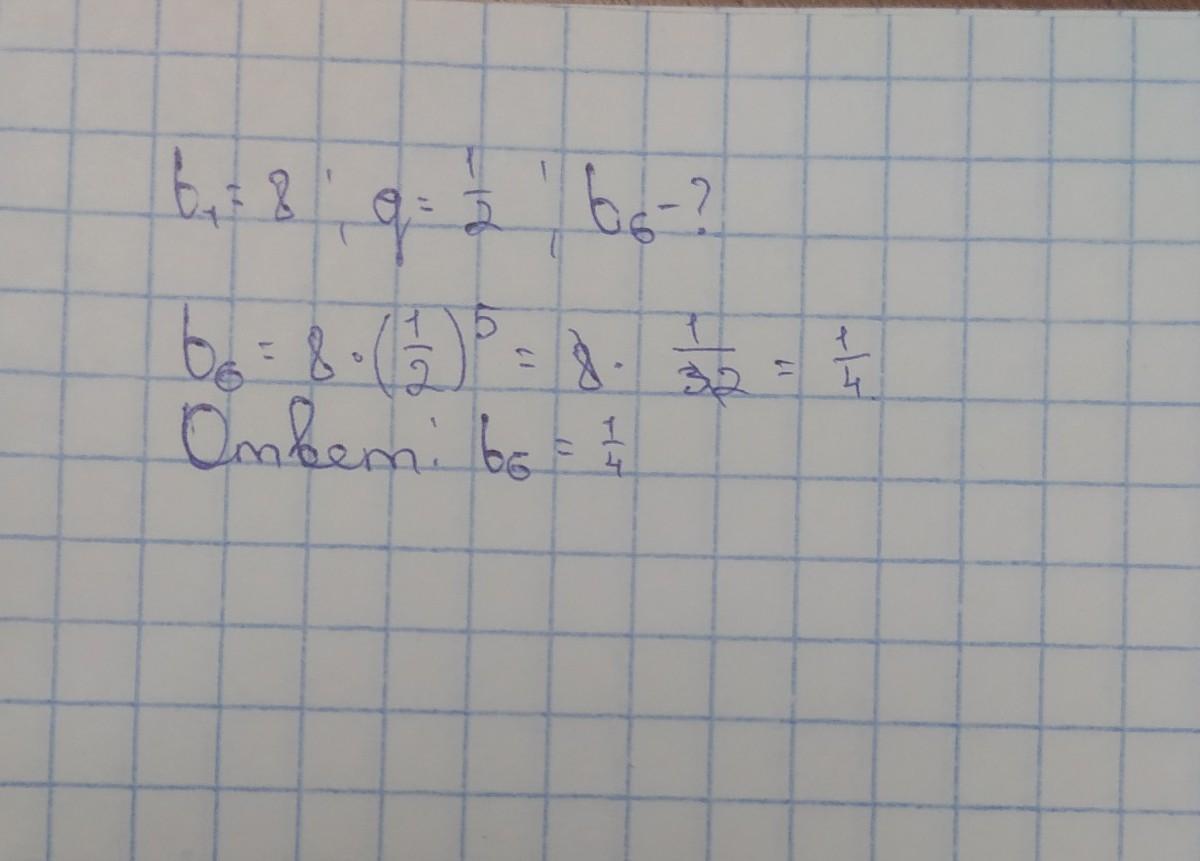 b₁ = 8 ; q = 1/2 ; b₆ - ?
b₆ = 8 · (1/2)⁵ = 8 · 1/32 = 1/4
Ответ: b₆ = 1/4